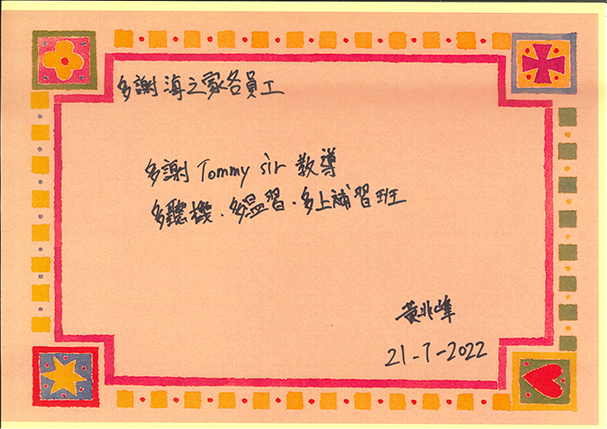 多謝海之家各員工
多謝 Tommy sir 教導
多聽機.多溫習.多上補習班
黃兆峰
21-7-2022